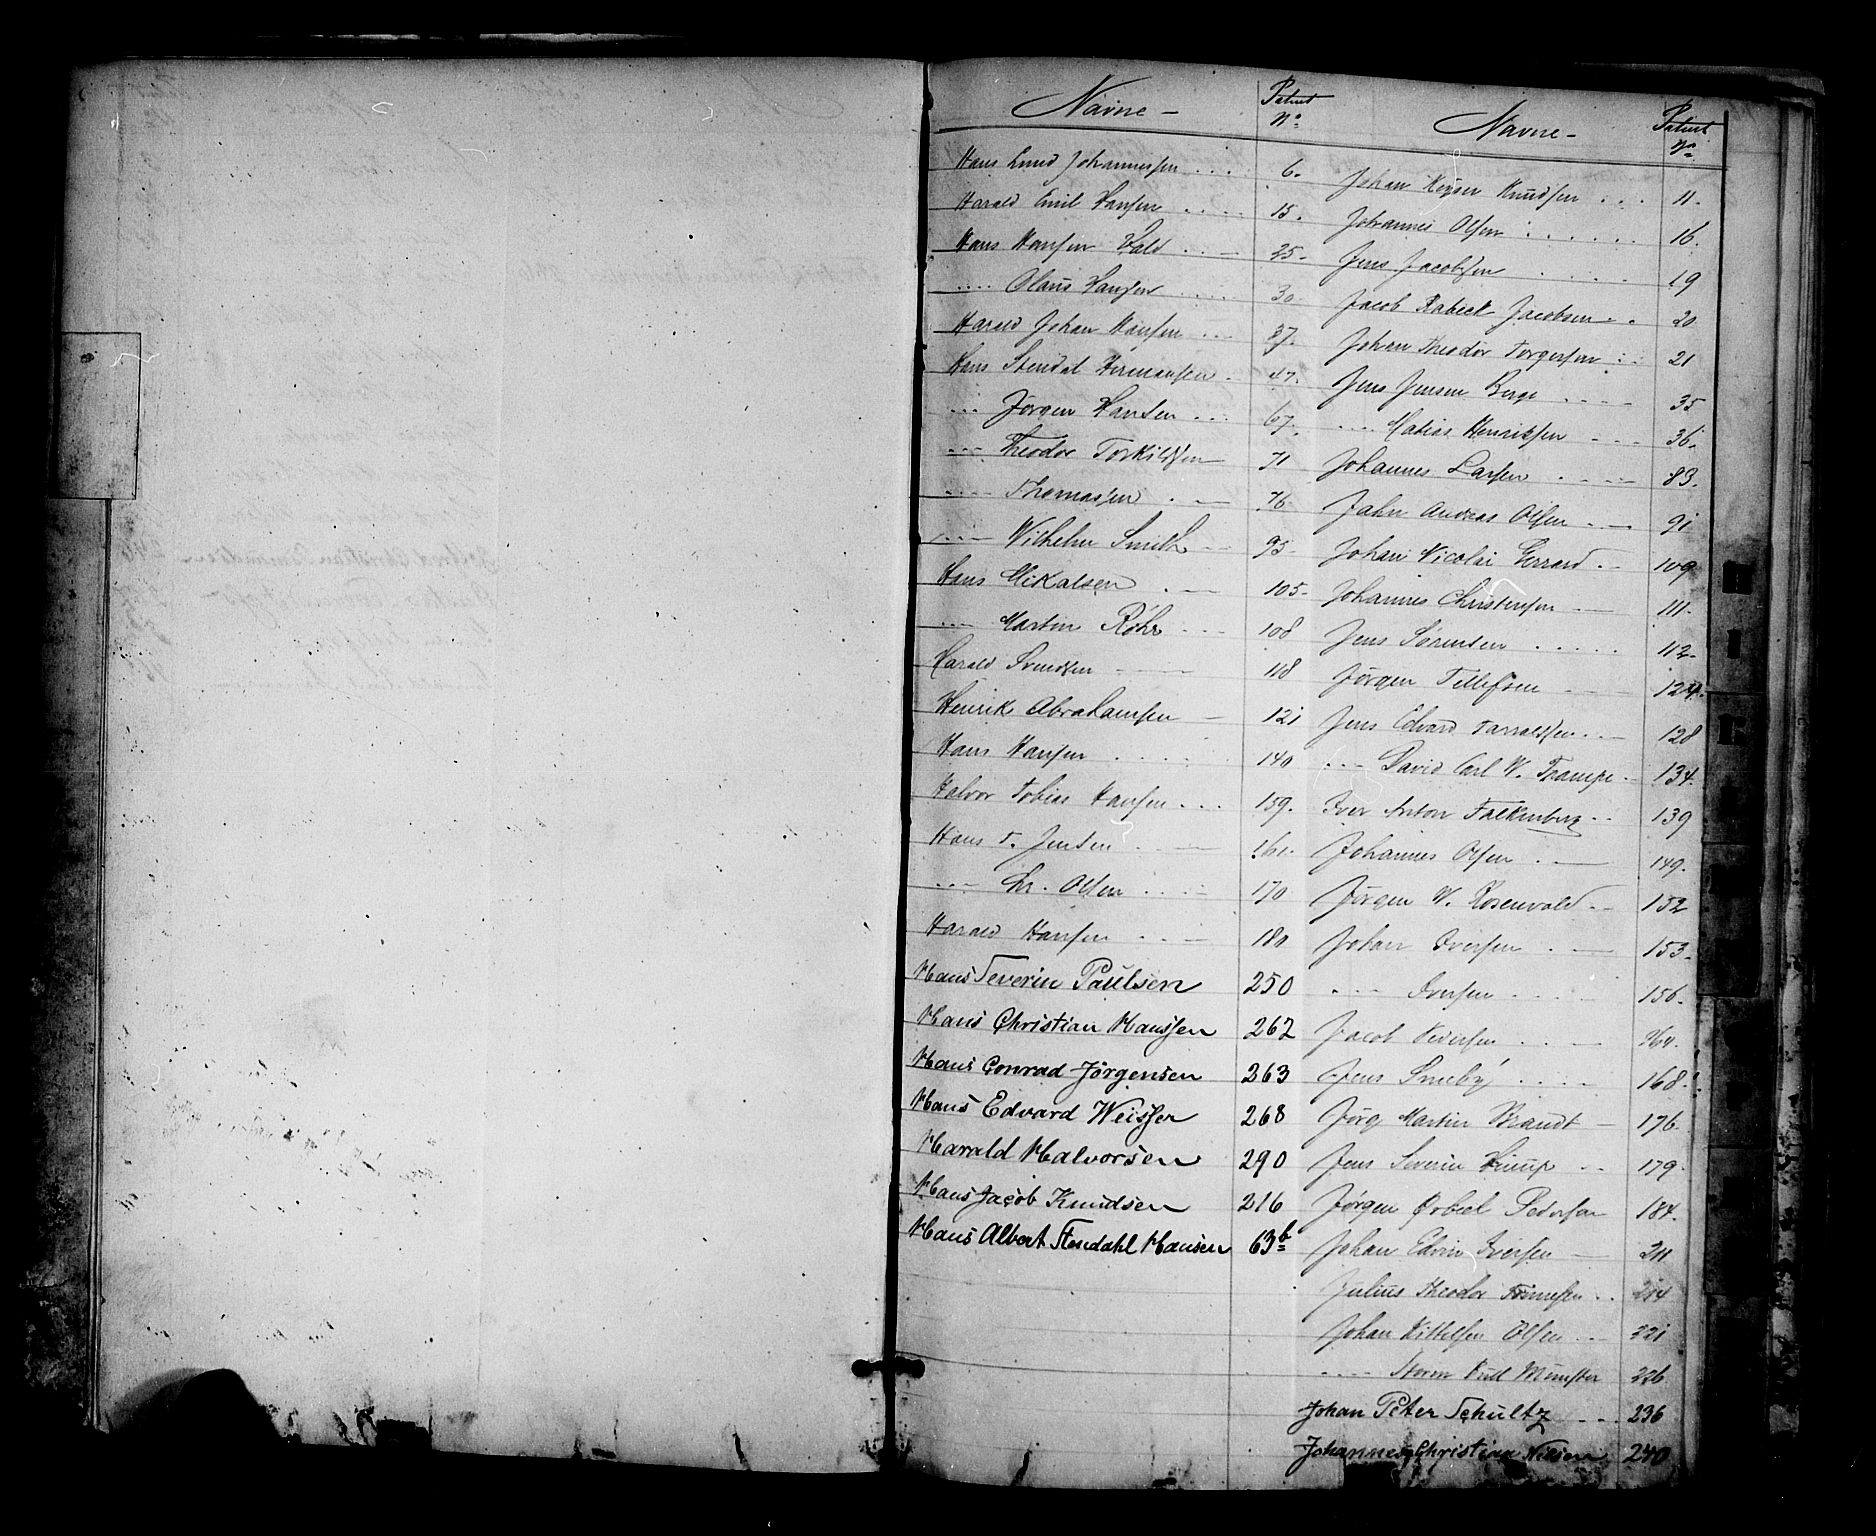 Navne - Patent No
Hans Lund Johannessen . . . 6.
Harald Emil Hansen . . . . 15.
Hans Hansen Vold . . . 25.
.... Olaus Hansen . . . . . 30.
Harald Johan Hansen . . . 37.
Hans Stendal Hermansen . 47.
... Jørgen Hansen . . . 67.
... Theodor Torkildsen 71
.... Thomassen . — 76.
.... Wilhelm Smith 95.
Hans Mikalsen . — 105.
... Martin Röhr . . . 108
Harald Svendsen 118
Henrik Abrahamsen — 121
Hans Hansen . . . . . 140
Halvor Tobias Hansen . . . 159.
Hans T. Jensen . . . — 161.
... Chr. Olsen . . . . . 170
Harald Hansen . . . — 180
Hans Severin Paulsen 250
Hans Christian Hanssen 262
Hans Conrad Jørgensen 263
Hans Edvard Weisser 268
Harald Halvorsen 290
Hans Jacob Knudsen 216
Hans Albert Stendahl Hansen 63b
Navne - Patent No
Johan Keyser Knudsen . . . 11.
Johannes Olsen . . . . . . 16.
Jens Jacobsen . . . . . 19
Jacob Rabeck Jacobsen . . 20
Johan Theodor Torgersen . . 21
Jens Jensen Berge . . . . 35
.... Matias Henriksen . . . 36.
Johannes Larsen . . . . 83.
Jahn Andreas Olsen . — 91
Johan Nicolai Gerrard . — 109.
Johannes Christensen — 111.
Jens Sørensen . . . . . 112.
Jørgen Tellefsen 124.
Jens Edvard Tarraldsen . . — 128
... David Carl W. Trampe . 134.
Iver Anton Falkenberg . . 139
Johannes Olsen . — 149.
Jørgen W. Rosenvold . . 152
Johan Iversen . — 153.
... Iversen . . . . . 156.
Jacob Iversen . . . —
Jens Smeby . . . . 168.
Jørg Martin Brandt — 176.
Jens Severin . . 179.
Jørgen Ørbek Pedersen 184.
Johan Edvin Iversen — 211
Julius Theodor . . 214
Johan Kittelsen Olsen . . 221
.... Storm Münster 226
Johan Peter Schultz . . . 236
Johannes Christian Nilsen 240